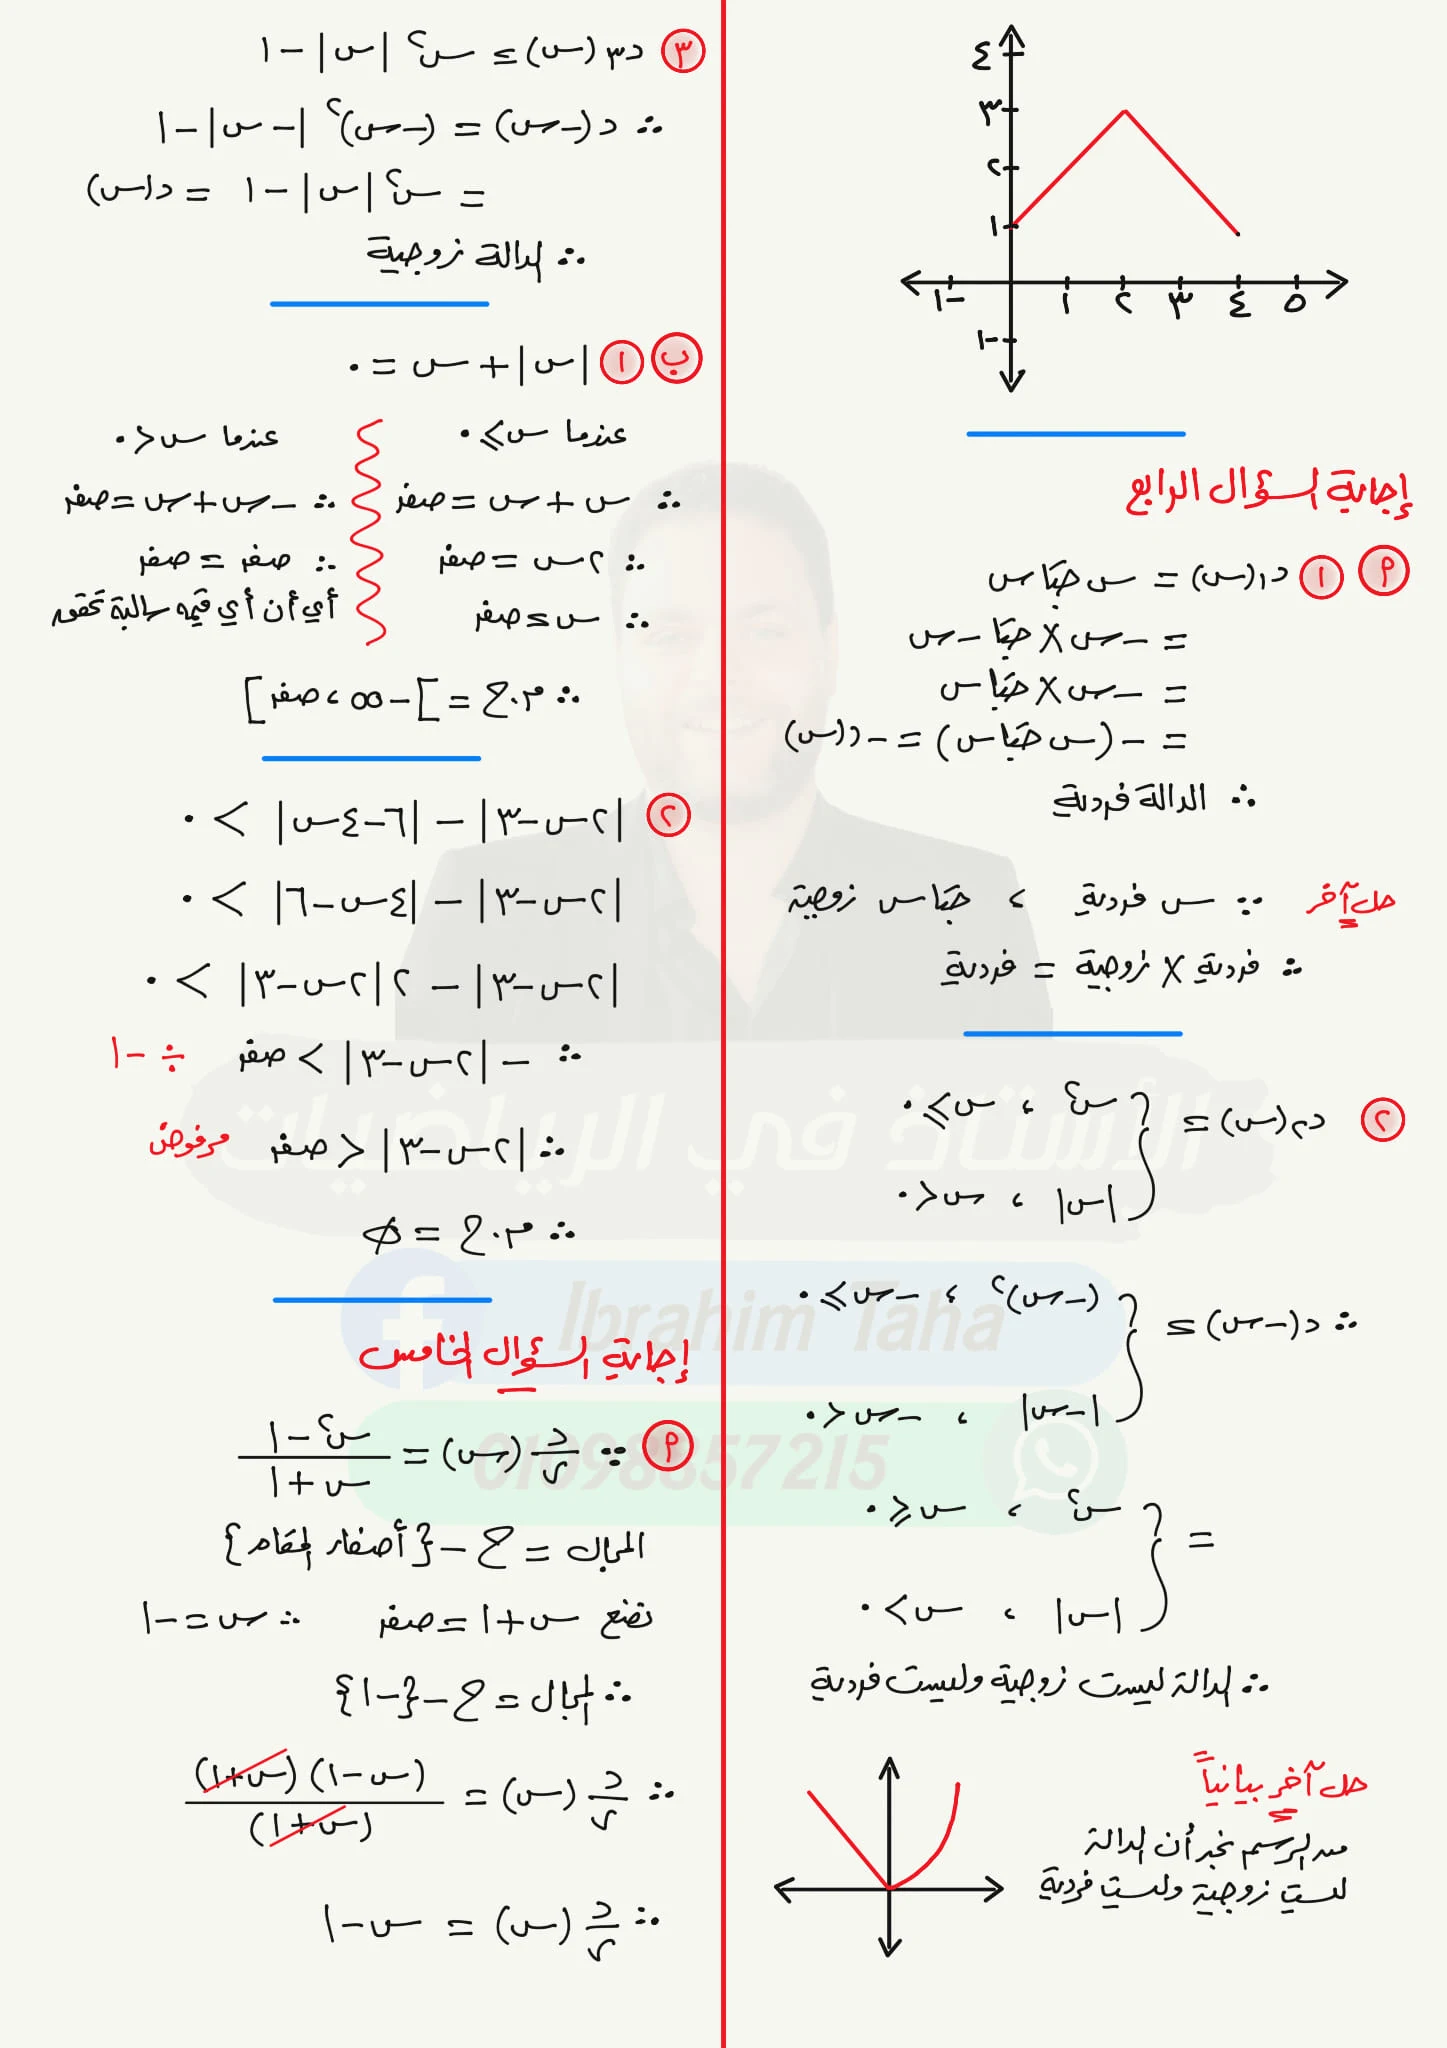 ٤
٣
٢
١
-١ ١ ٢ ٣ ٤ ٥
-١
إجابة السؤال الرابع
أ ١ د١(س) = س جتا س
= -س × جتا -س
= -س × جتا س
= -(س جتا س) = -د(س)
∴ الدالة فردية
حل آخر ∵ س فردية ، جتا س زوجية
∴ فردية × زوجية = فردية
٢ د٢(س) = { س² ، س ≥ ٠
|س| ، س < ٠
∴ د(-س) = { (-س)² ، -س ≥ ٠
|-س| ، -س < ٠
= { س² ، س ≤ ٠
|س| ، س > ٠
∴ الدالة ليست زوجية وليست فردية
حل آخر بيانياً
من الرسم نجد أن الدالة
ليست زوجية وليست فردية
٣ د٣(س) = س² |س| - ١
∴ د(-س) = (-س)² |-س| - ١
= س² |س| - ١ = د(س)
∴ الدالة زوجية
ب ١ |س| + س = ٠
عندما س ≥ ٠
∴ س + س = صفر
∴ ٢س = صفر
∴ س = صفر
عندما س < ٠
∴ -س + س = صفر
∴ صفر = صفر
أي أن أي قيمه سالبة تحقق
∴ م.ح = ]-∞ ، صفر]
٢ |٢س-٣| - |٦-٤س| > ٠
|٢س-٣| - |٤س-٦| > ٠
|٢س-٣| - ٢|٢س-٣| > ٠
∴ -|٢س-٣| > صفر ÷ -١
∴ |٢س-٣| < صفر مرفوض
∴ م.ح = ∅
إجابة السؤال الخامس
أ ∵ د/ر (س) = (س² - ١)/(س + ١)
المجال = ح - {أصفار المقام}
نضع س + ١ = صفر ∴ س = -١
∴ المجال = ح - {-١}
∴ د/ر (س) = (س-١)(س+١)/(س+١)
∴ د/ر (س) = س - ١
الأستاذ في الرياضيات
Ibrahim Taha